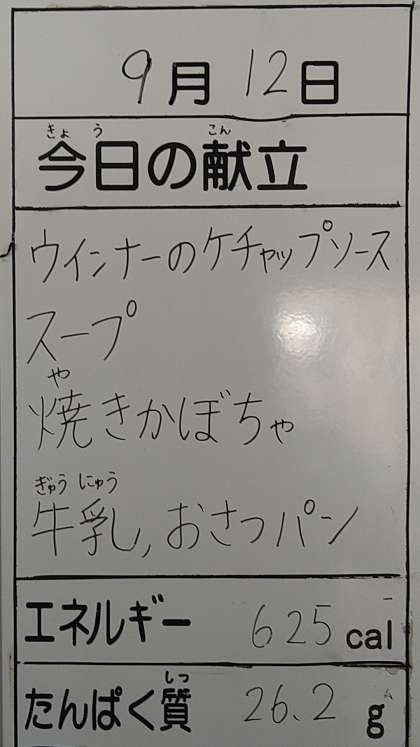 9月12日
きょう こん
今日の献立
ウインナーのケチャップソース
スープ
や
焼きかぼちゃ
ぎゅうにゅう
牛乳, おさつパン
エネルギー 625 cal
しつ
たんぱく質 26.2 g